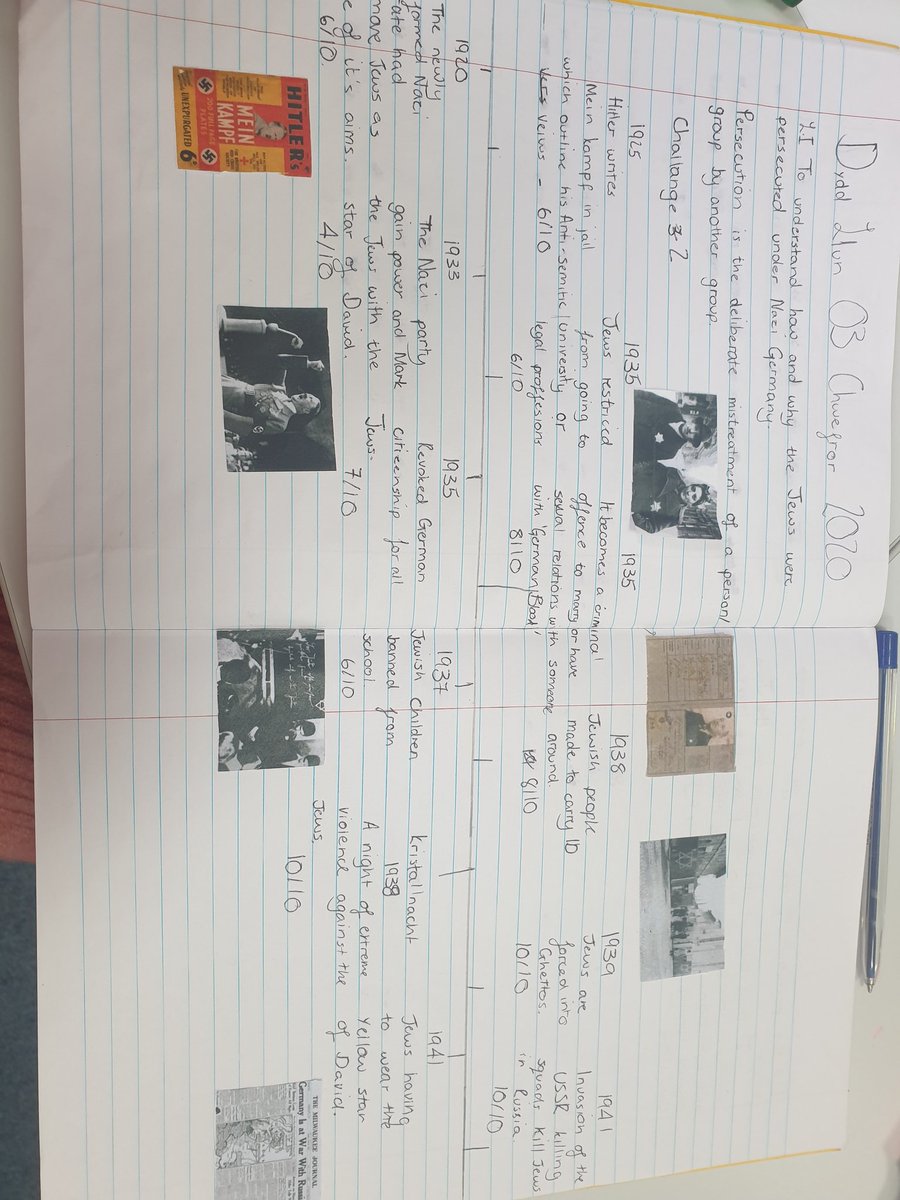 Dydd Llun 03 Chwegror 2020
LI To understand how and why the Jews were
persecuted under Nazi Germany.
Persecution is the deliberate mistreatment of a person/
group by another group.
Challange 2
1925
Hitler writes
Mein Kampf in jail
which outline his Anti-semitic
veiws - 6/10
1935
Jews restricd
from going to
university or
legal proffesions
6/10
1935
It becomes a criminal
offence to marry or have
sexual relations with someone
with 'German Blood'
8/10
1938
Jewish people
made to carry ID
around.
8/10
1939
Jews are
forced into
Ghettos.
10/10
1941
Invasion of the
USSR killing
squads kill Jews
in Russia
10/10
1920
The newly
formed Nazi
had
Jews as
of it's aims.
6/10
1933
The Nazi party
gain power and Mark
the Jews with the
star of David.
4/10
1935
Revoked German
citizenship for all
Jews.
7/10
1937
Jewish Children
banned from
school.
6/10
Kristallnacht
1938
A night of extreme
violence against the
Jews.
10/10
1941
Jews having
to wear the
Yellow star
of David.
HITLER's
MEIN
KAMPF
UNEXPURGATED 6d
THE MILWAUKEE JOURNAL
Germany Is at War With